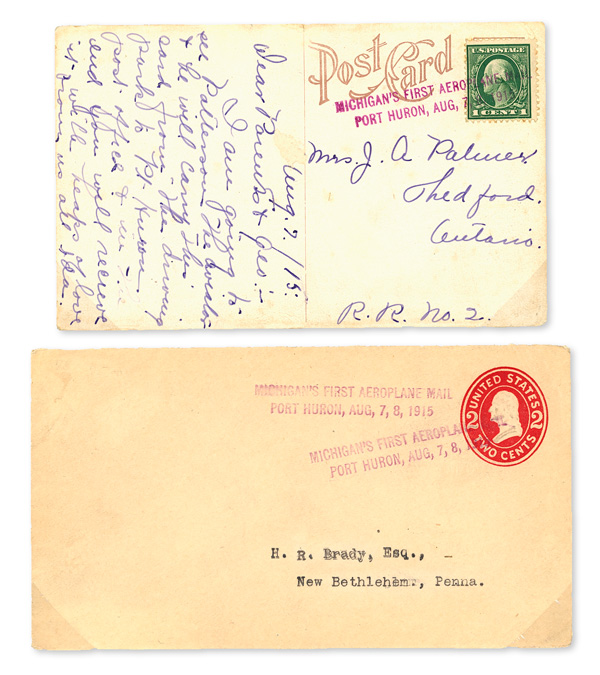 Post Card
U.S. POSTAGE
1 CENT 1
MICHIGAN'S FIRST AEROPLANE MAIL
PORT HURON, AUG, 7
191
Mrs. J. A Palmer
Thedford.
Ontario.
R. R. No. 2.
Aug. 7/15.
Dear Parents & Geo:-
I am going to
see Patterson The aviator
& he will carry this
card from The driving
park to Pt. Huron
post office &
and you will recieve
it. With heaps of love
from us all
MICHIGAN'S FIRST AEROPLANE MAIL
PORT HURON, AUG, 7, 8, 1915
UNITED STATES
2 2
TWO CENTS
MICHIGAN'S FIRST AEROPLA
PORT HURON, AUG, 7, 8,
H. R. Brady, Esq., —
New Bethlehem, Penna.